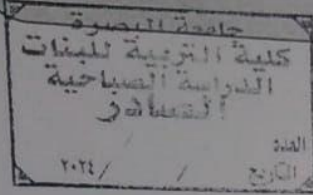 جامعة البصرة
كلية التربية للبنات
الدراسة الصباحية
الصادر
العدد / /
التاريخ / / ٢٠٢٤